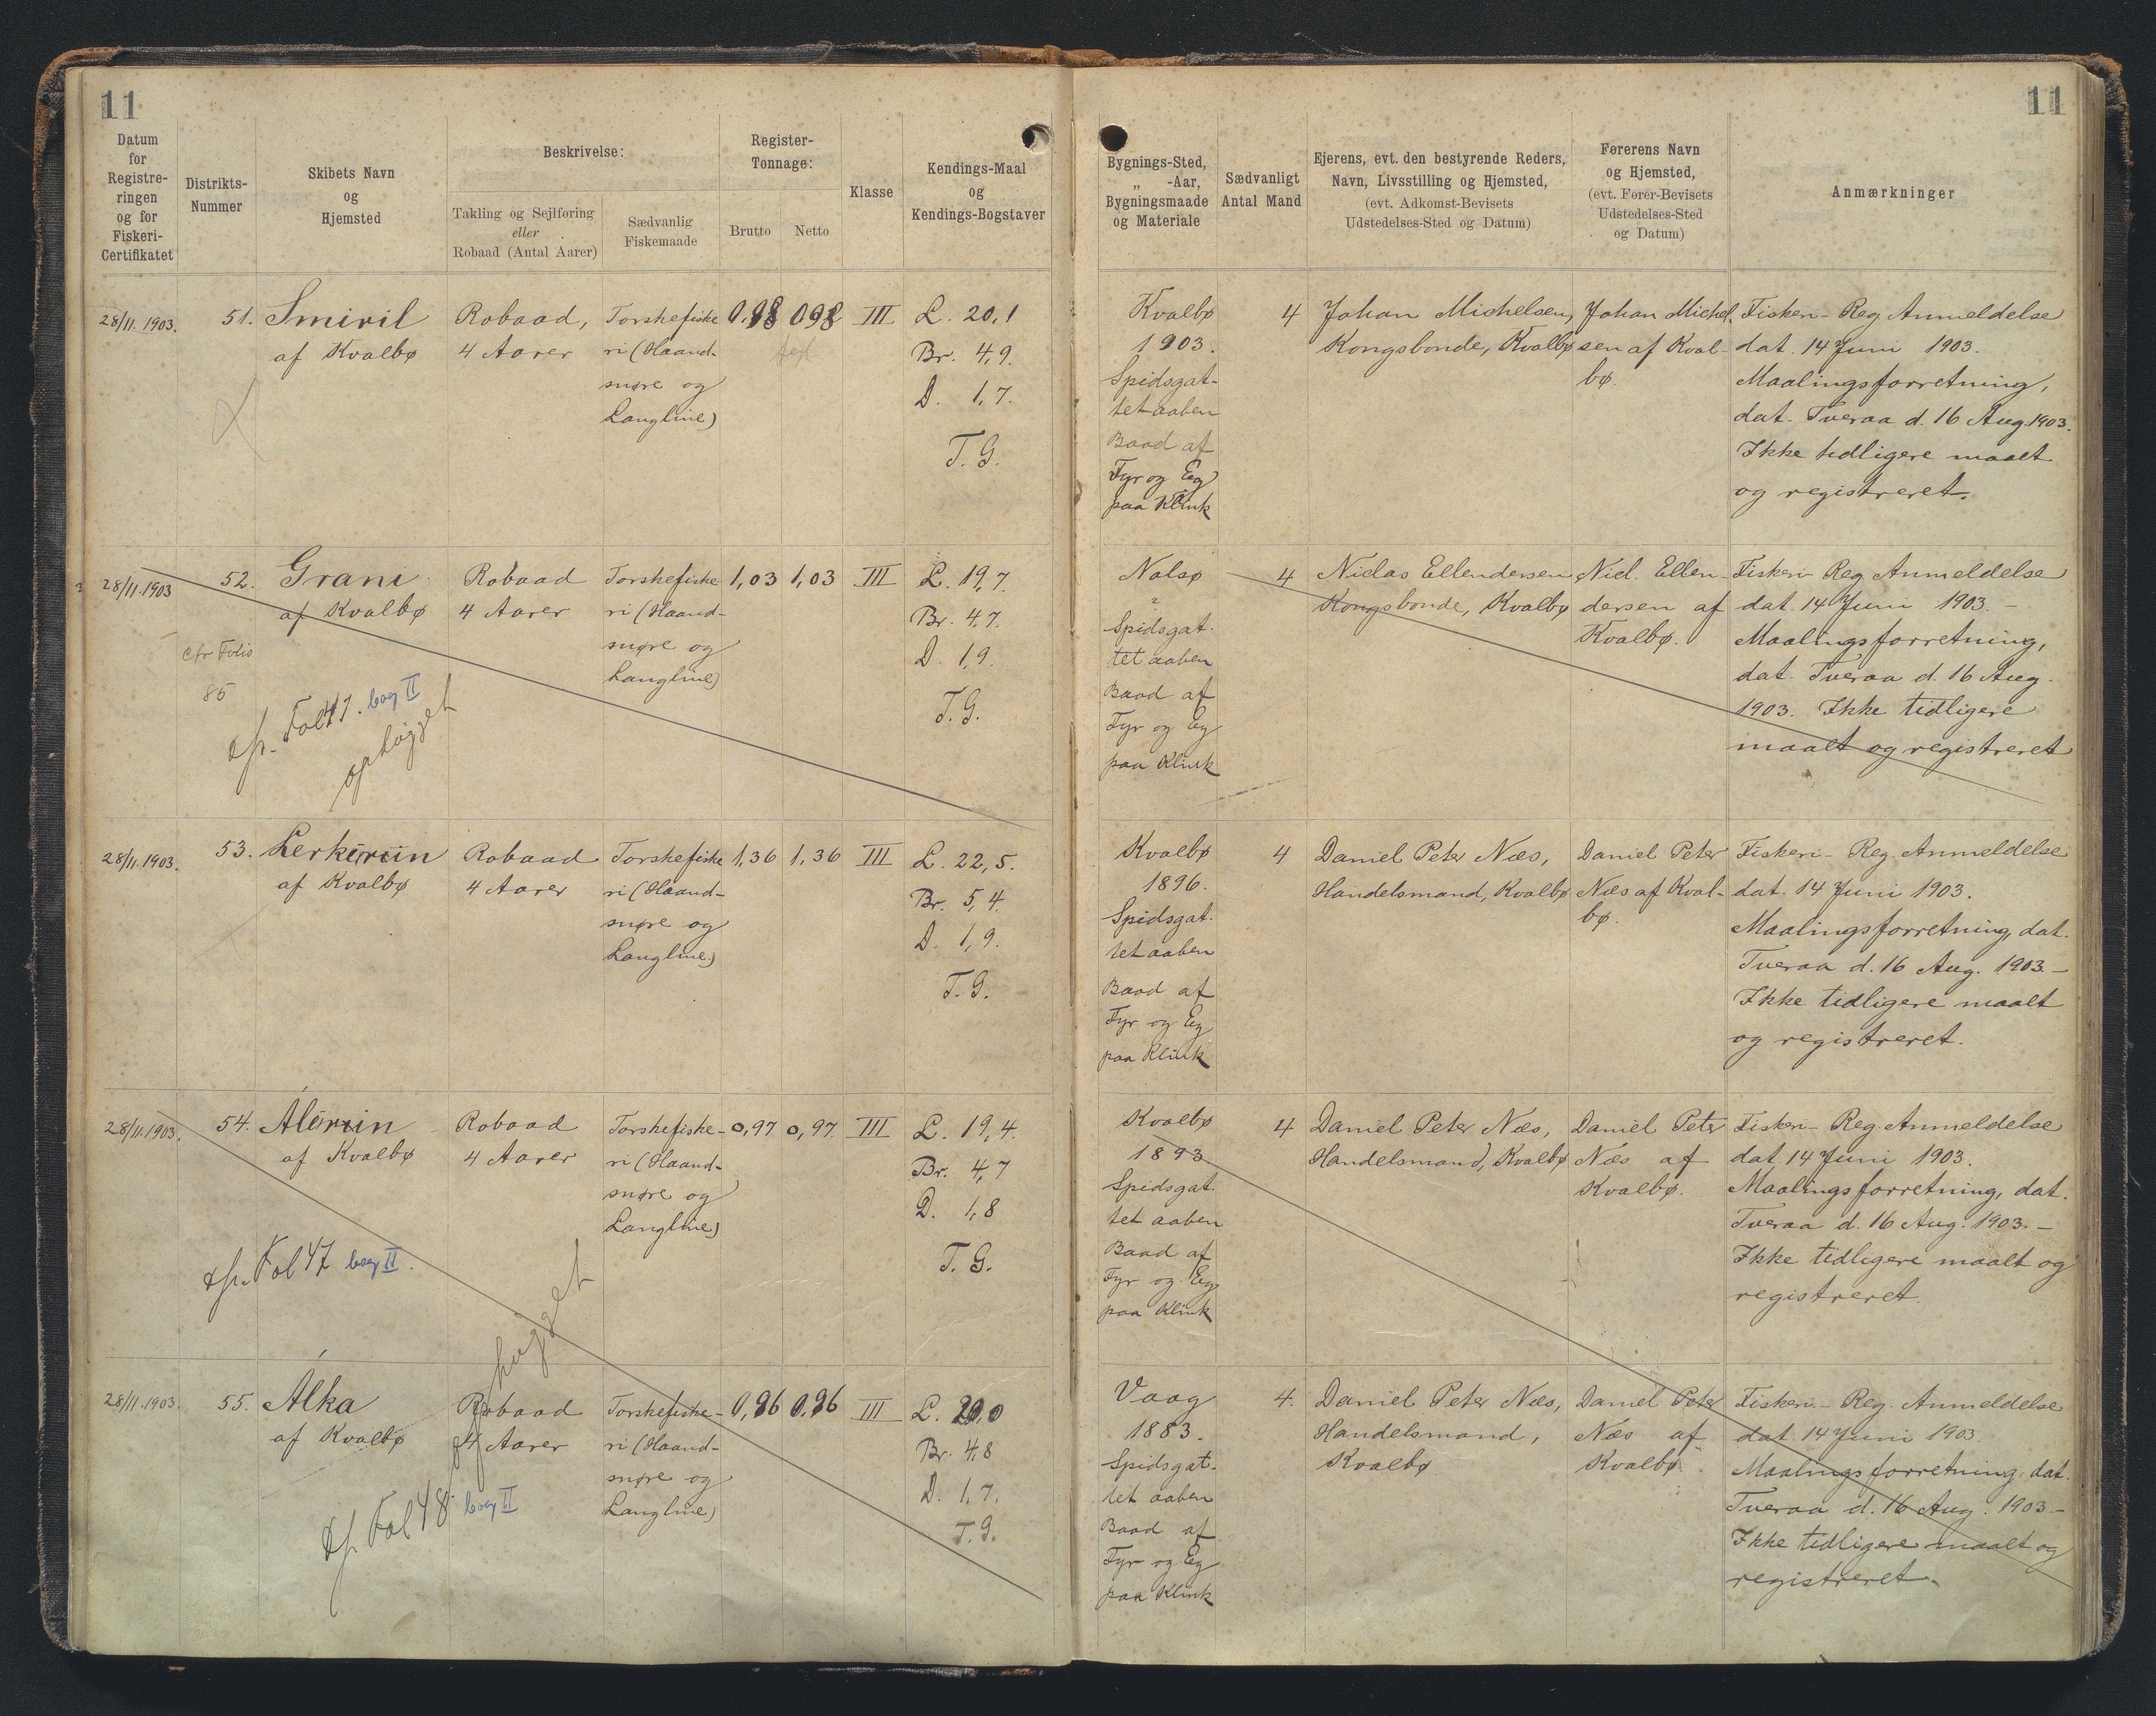 11
11
Datum
for
Registre-
ringen
og for
Fiskeri-
Certifikatet
Distrikts-
Nummer
Skibets Navn
og
Hjemsted
Beskrivelse:
Takling og Sejlføring
eller
Robaad (Antal Aarer)
Sædvanlig
Fiskemaade
Register-
Tonnage:
Brutto
Netto
Klasse
Kendings-Maal
og
Kendings-Bogstaver
Bygnings-Sted,
„ -Aar,
Bygningsmaade
og Materiale
Sædvanligt
Antal Mand
Ejerens, evt. den bestyrende Reders,
Navn, Livsstilling og Hjemsted,
(evt. Adkomst-Bevisets
Udstedelses-Sted og Datum)
Førerens Navn
og Hjemsted,
(evt. Fører-Bevisets
Udstedelses-Sted
og Datum)
Anmærkninger
28/11.1903.
51.
Smiril
af Kvalbø
Robaad,
4 Aarer
Torskefiske
ri (Haand-
snøre og
Langline)
0,98
0,98
III
L. 20,1
Br. 4,9.
D. 1,7.
T. G.
Kvalbø
1903.
Spidsgat-
tet aaben
Baad af
Fyr og Eg
paa Klink
4
Johan Michelsen,
Kongsbonde, Kvalbø
Johan Michel-
sen af Kval-
bø.
Fiskeri-Reg. Anmeldelse
dat. 14 Juni 1903.
Maalingsforretning,
dat. Tveraa d. 16 Aug. 1903.
Ikke tidligere maalt
og registreret.
28/11.1903
52.
Grani
af Kvalbø
cfr Folio
85
cfr. Fol 47. bog II
ophøgget
Robaad
4 Aarer
Torskefiske-
ri (Haand-
snøre og
Langline)
1,03
1,03
III
L. 19,7.
Br. 4,7.
D. 1,9.
T. G.
Nolsø
?
Spidsgat-
tet aaben
Baad af
Fyr og Eg
paa Klink
4
Niclas Ellendersen
Kongsbonde, Kvalbø
Nicl. Ellen-
dersen af
Kvalbø.
Fiskeri-Reg. Anmeldelse
dat. 14 Juni 1903.-
Maalingsforretning,
dat. Tveraa d. 16 Aug.
1903. Ikke tidligere
maalt og registreret
28/11.1903.
53.
af Kvalbø
Robaad
4 Aarer
Torskefiske
ri (Haand-
snøre og
Langline)
1,36
1,36
III
L. 22,5.
Br. 5,4.
D. 1,9.
T. G.
Kvalbø
1896.
Spidsgat-
tet aaben
Baad af
Fyr og Eg
paa Klink
4
Daniel Peter Næs,
Handelsmand, Kvalbø
Daniel Peter
Næs af Kval-
bø.
Fiskeri-Reg. Anmeldelse
dat. 14 Juni 1903.
Maalingsforretning, dat.
Tveraa d. 16 Aug. 1903.-
Ikke tidligere maalt
og registreret.
28/11.1903.
54.
af Kvalbø
cfr. Fol 47 bog II.
Robaad
4 Aarer
Torskefiske-
ri (Haand-
snøre og
Langline)
0,97
0,97.
III
L. 19,4.
Br. 4,7
D. 1,8
T. G.
Kvalbø
1893
Spidsgat-
tet aaben
Baad af
Fyr og Eg
paa Klink
4
Daniel Peter Næs,
Handelsmand, Kvalbø
Daniel Peter
Næs af
Kvalbø.
Fiskeri-Reg. Anmeldelse
dat. 14 Juni 1903.
Maalingsforretning, dat.
Tveraa d. 16 Aug. 1903.-
Ikke tidligere maalt og
registreret.
28/11.1903.
55.
Alka
af Kvalbø
cfr. Fol 48. bog II
ophøgget
Robaad
4 Aarer
Torskefiske-
ri (Haand-
snøre og
Langline)
0,96
0,96
III
L. 20,0
Br. 4,8
D. 1,7.
T. G.
Vaag
1883.
Spidsgat-
tet aaben
Baad af
Fyr og Eg
paa Klink
4.
Daniel Peter Næs,
Handelsmand,
Kvalbø
Daniel Peter
Næs af
Kvalbø.
Fiskeri-Reg. Anmeldelse
dat. 14 Juni 1903.
Maalingsforretning, dat.
Tveraa d. 16 Aug. 1903.-
Ikke tidligere maalt og
registreret.